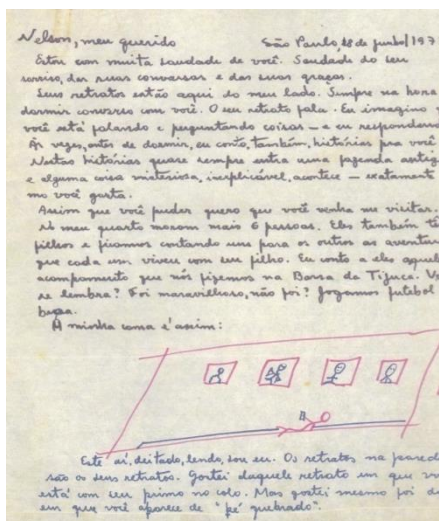 Nelson, meu querido São Paulo, 18 de junho/197
Estou com muita saudade de você. Saudade do seu
sorriso, das suas conversas e das suas graças.
Seus retratos estão aqui do meu lado. Sempre na hora
dormir converso com você. O seu retrato fala. Eu imagino
você está falando e perguntando coisas — e eu respondendo
Às vezes, antes de dormir, eu conto, também, histórias pra você
Nestas histórias quase sempre entra uma fazenda antiga
e alguma coisa misteriosa, inexplicável, acontece — exatamente
mo você gosta.
Assim que você puder quero que você venha me visitar.
No meu quarto moram mais 6 pessoas. Eles também tê
filhos e ficamos contando uns para os outros as aventur
que cada um viveu com seu filho. Eu conto a eles aquel
acampamento que nós fizemos na Barra da Tijuca. Vo
se lembra? Foi maravilhoso, não foi? Jogamos futebol
A minha cama é assim:
Este aí, deitado, lendo, sou eu. Os retratos na pared
são os seus retratos. Gostei daquele retrato em que vo
está com seu primo no colo. Mas gostei mesmo foi d
em que você aparece de "pé quebrado".